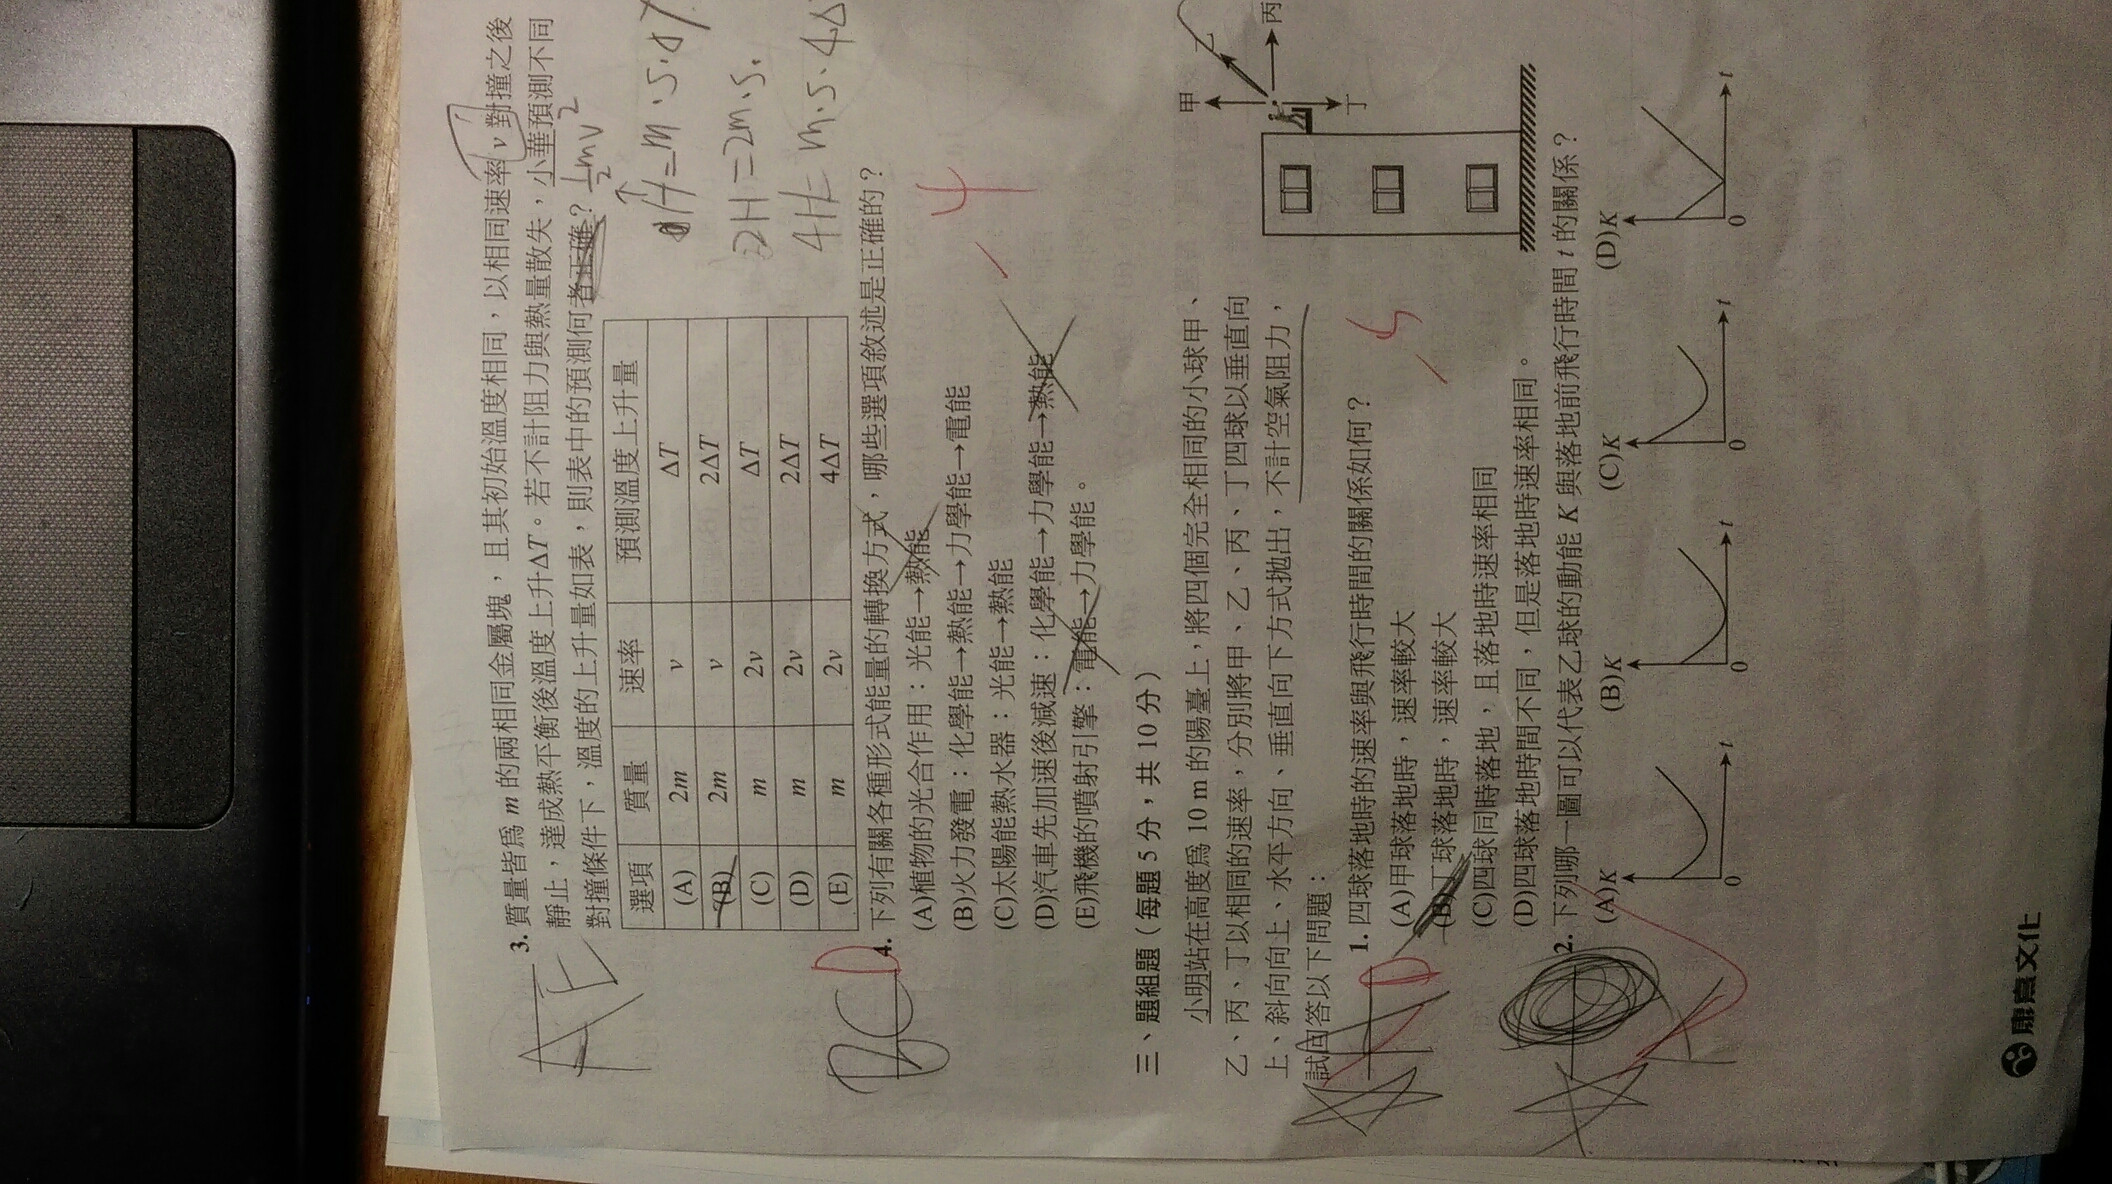 3. 質量皆為 m 的兩相同金屬塊，且其初始溫度相同，以相同速率 v 對撞之後
靜止，達成熱平衡後溫度上升ΔT。若不計阻力與熱量散失，小華預測不同
對撞條件下，溫度的上升量如表，則表中的預測何者正確？
½mv²
AE
選項 質量 速率 預測溫度上升量
(A) 2m v ΔT
(B) 2m v 2ΔT
(C) m 2v ΔT
(D) m 2v 2ΔT
(E) m 2v 4ΔT
2H=2m·s·
4H=m·s·4Δ
BCD
4. 下列有關各種形式能量的轉換方式，哪些選項敘述是正確的？
(A)植物的光合作用：光能→熱能
(B)火力發電：化學能→熱能→力學能→電能
(C)太陽能熱水器：光能→熱能
(D)汽車先加速後減速：化學能→力學能→熱能
(E)飛機的噴射引擎：電能→力學能。
-4
三、題組題（每題 5 分，共 10 分）
小明站在高度為 10 m 的陽臺上，將四個完全相同的小球甲、
乙、丙、丁以相同的速率，分別將甲、乙、丙、丁四球以垂直向
上、斜向向上、水平方向、垂直向下方式拋出，不計空氣阻力，
試回答以下問題：
甲
乙
丙
丁
1. 四球落地時的速率與飛行時間的關係如何？
(A)甲球落地時，速率較大
(B)丁球落地時，速率較大
(C)四球同時落地，且落地時速率相同
(D)四球落地時間不同，但是落地時速率相同。
D
-5
2. 下列哪一圖可以代表乙球的動能 K 與落地前飛行時間 t 的關係？
(A) K 0 t
(B) K 0 t
(C) K 0 t
(D) K 0 t
康熹文化